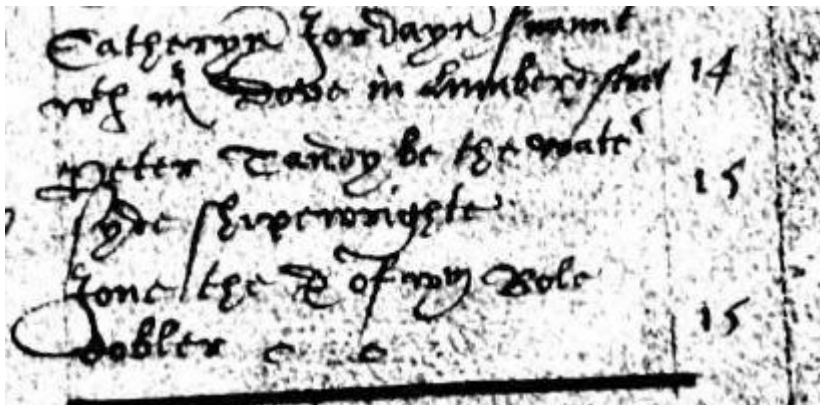 Catheryn Jordayn s'vannt
wth mr Dove in Lumberd stret 14
Peter Tandy be the wate'
syde shipewrighte 15
Jone the D of wm Role
Cobler 15